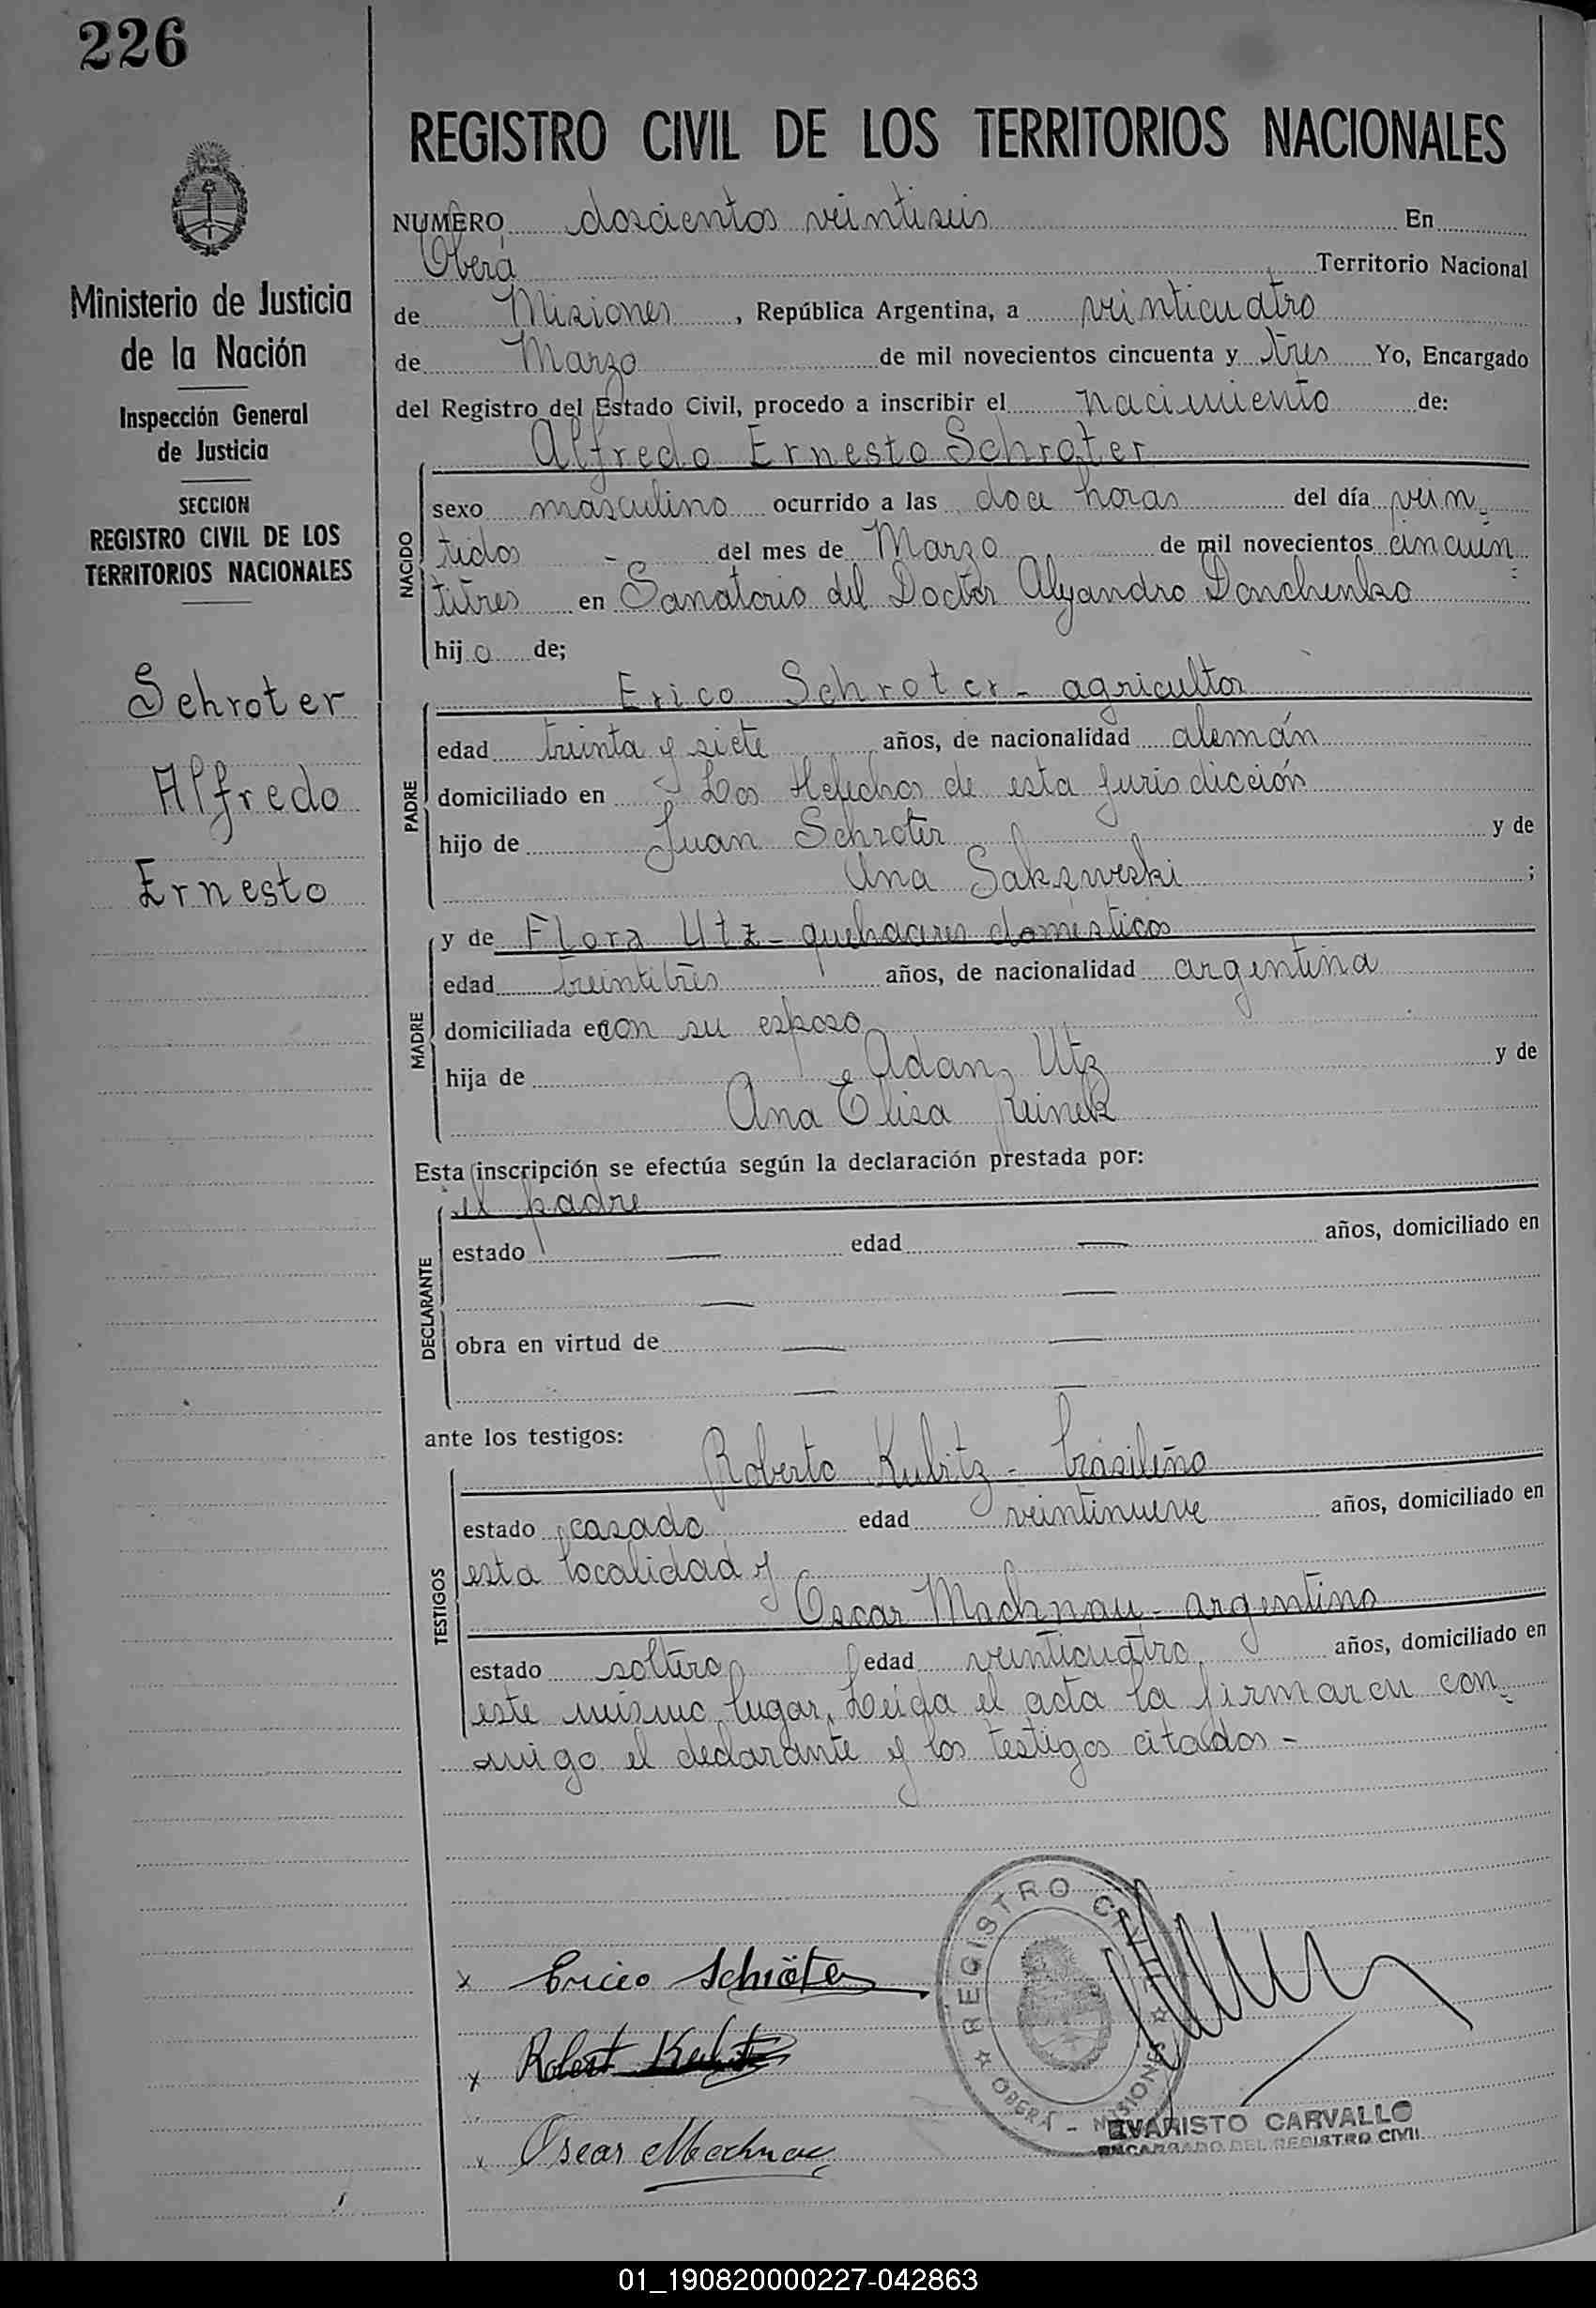 226
REGISTRO CIVIL DE LOS TERRITORIOS NACIONALES
Ministerio de Justicia
de la Nación
Inspección General
de Justicia
SECCION
REGISTRO CIVIL DE LOS
TERRITORIOS NACIONALES
Schroter
Alfredo
Ernesto
NUMERO doscientos veintiseis En
Oberá Territorio Nacional
de Misiones, República Argentina, a veinticuatro
de Marzo de mil novecientos cincuenta y tres Yo, Encargado
del Registro del Estado Civil, procedo a inscribir el nacimiento de:
Alfredo Ernesto Schroter
NACIDO
sexo masculino ocurrido a las doce horas del día vein-
tidos - del mes de Marzo de mil novecientos cincuen=
titres en Sanatorio del Doctor Alejandro Danchenko
hijo de;
Erico Schroter - agricultor
PADRE
edad treinta y siete años, de nacionalidad alemán
domiciliado en Los Helechos de esta jurisdicción
hijo de Juan Schroter y de
Ana Sakzweski ;
y de Flora Utz - quehaceres domésticos
MADRE
edad treintitrés años, de nacionalidad argentina
domiciliada en con su esposo
hija de Adan Utz y de
Ana Elisa Reinek
Esta inscripción se efectúa según la declaración prestada por:
el padre
DECLARANTE
estado — edad — años, domiciliado en
— —
obra en virtud de — —
— —
ante los testigos:
Roberto Kubitz - brasileño
TESTIGOS
estado casado edad veintinueve años, domiciliado en
esta localidad y
Oscar Machnau - argentino
estado soltero edad veinticuatro años, domiciliado en
este mismo lugar. Leída el acta la firmaron con-
migo el declarante y los testigos citados -
x Erico Schröter
x Robert Kubitz
x Oscar Machnau
REGISTRO CIVIL
OBERÁ - MISIONES
EVARISTO CARVALLO
ENCARGADO DEL REGISTRO CIVIL
01_190820000227-042863